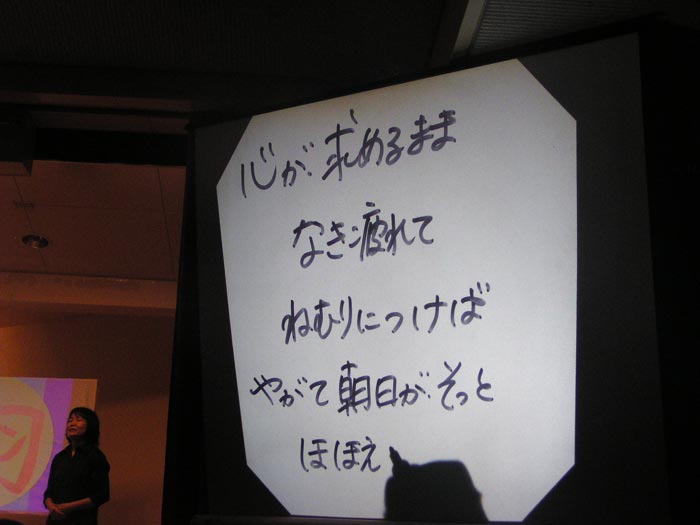 心が求めるまま
なき疲れて
ねむりにつけば
やがて朝日がそっと
ほほえ